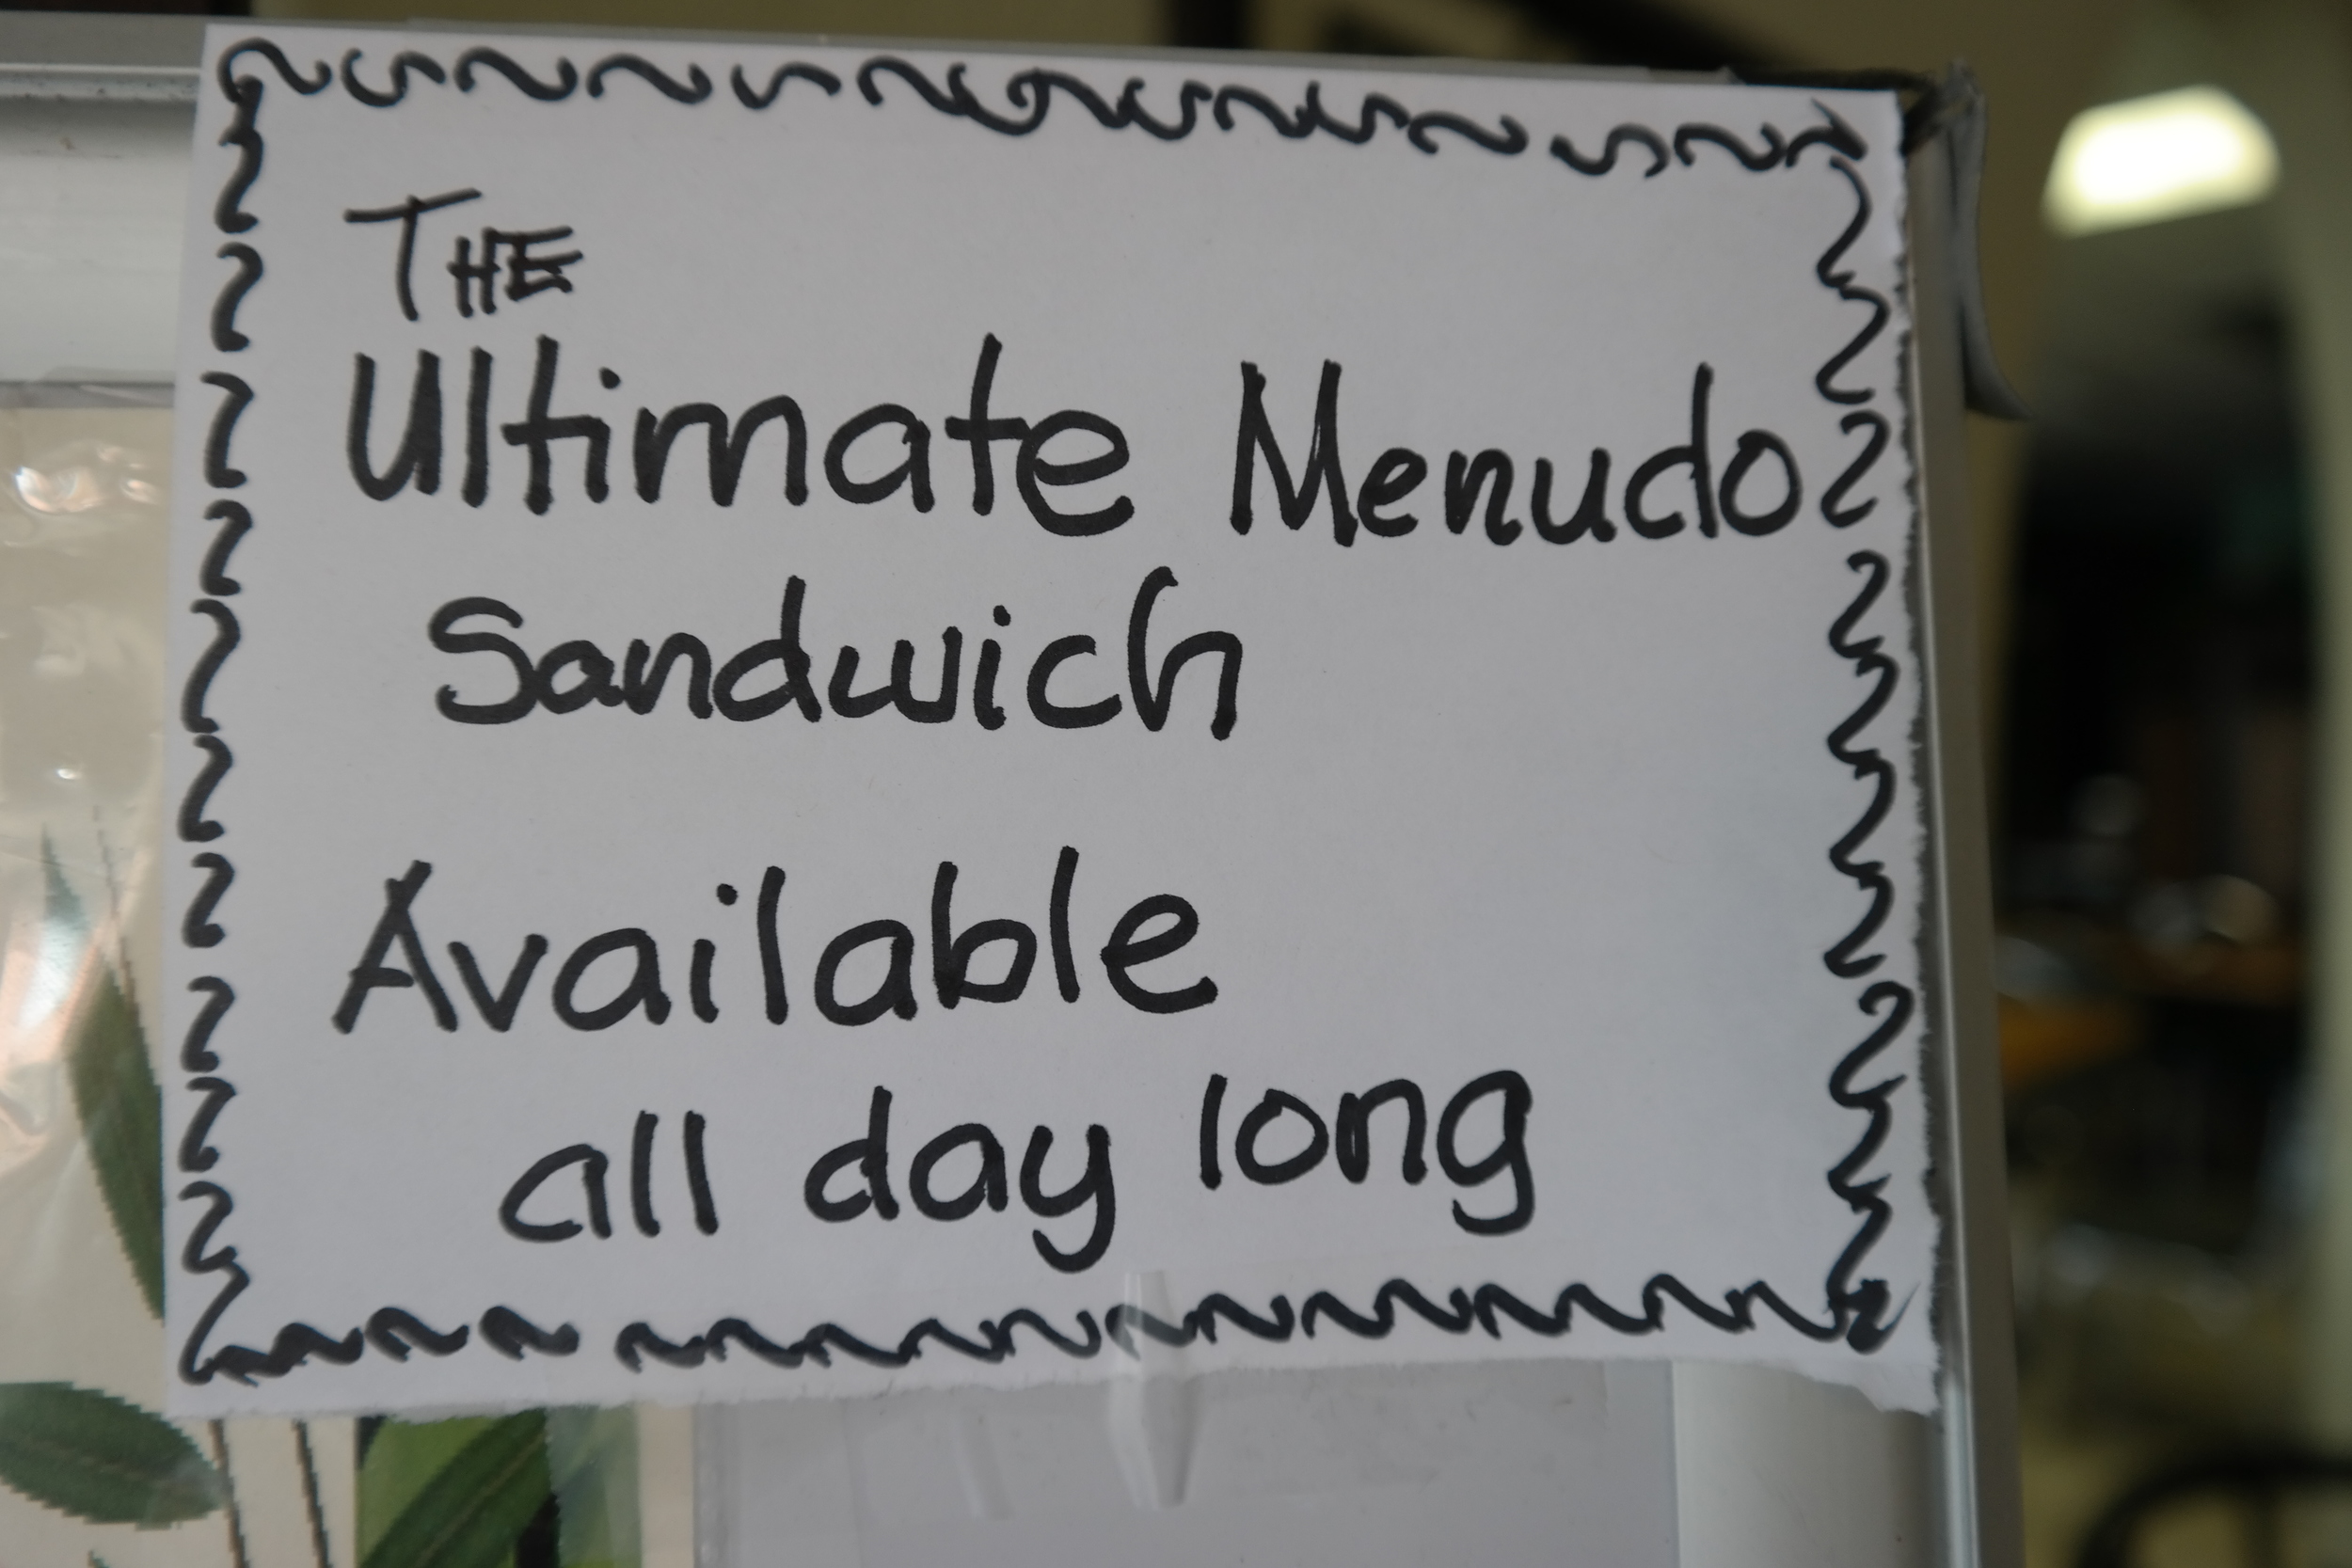 THE
Ultimate Menudo
Sandwich
Available
all day long